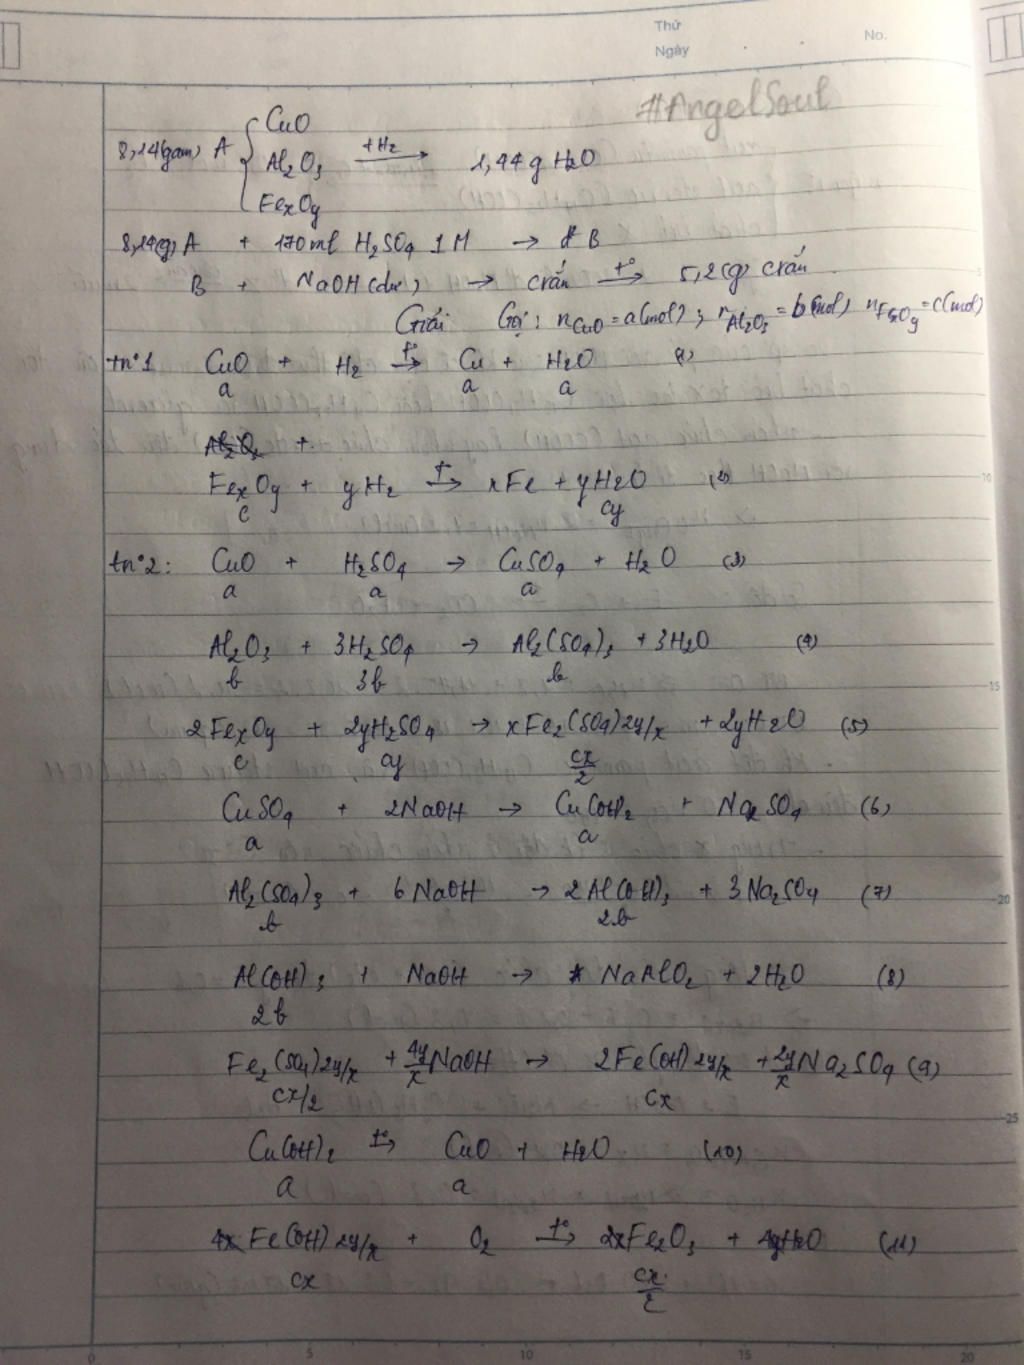 Thứ
Ngày
No.
#AngelSoul
8,14(gam) A { CuO
Al₂O₃ +H₂ → 1,44g H₂O
FexOy
8,14(g) A + 170ml H₂SO₄ 1M → d² B
B + NaOH(dư) → c rắn t° → 5,2(g) c rắn
Giải Gọi: nCuO = a(mol); nAl₂O₃ = b(mol) nFexOy = c(mol)
tn°1 CuO + H₂ t° → Cu + H₂O (1)
a a a
Al₂O₃ +
FexOy + yH₂ t° → xFe + yH₂O (2)
c cy
tn°2: CuO + H₂SO₄ → CuSO₄ + H₂O (3)
a a a
Al₂O₃ + 3H₂SO₄ → Al₂(SO₄)₃ + 3H₂O (4)
b 3b b
2FexOy + 2yH₂SO₄ → xFe₂(SO₄)2y/x + 2yH₂O (5)
c cy cx/2
CuSO₄ + 2NaOH → Cu(OH)₂ + Na₂SO₄ (6)
a a
Al₂(SO₄)₃ + 6NaOH → 2Al(OH)₃ + 3Na₂SO₄ (7)
b 2b
Al(OH)₃ + NaOH → NaAlO₂ + 2H₂O (8)
2b
Fe₂(SO₄)2y/x + 4y/x NaOH → 2Fe(OH)2y/x + 2y/x Na₂SO₄ (9)
cx/2 cx
Cu(OH)₂ t° → CuO + H₂O (10)
a a
4x Fe(OH)2y/x + O₂ t° → 2xFe₂O₃ + 4yH₂O (11)
cx cx/2
10
15
20
25
0 5 10 15 20